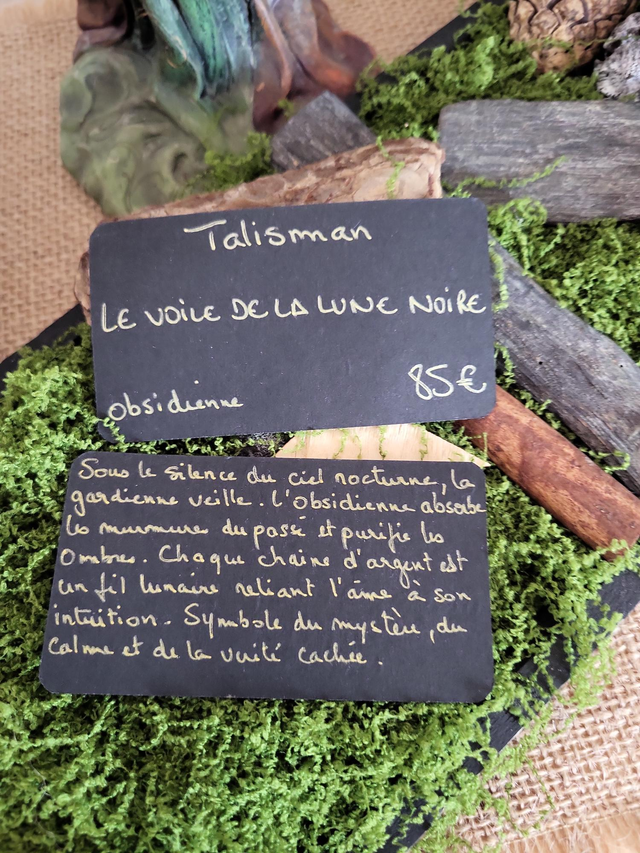 Talisman
LE VOILE DE LA LUNE NOIRE
Obsidienne
85€
Sous le silence du ciel nocturne, la
gardienne veille. L'obsidienne absorbe
les murmure du passé et purifie les
Ombres. Chaque chaîne d'argent est
un fil lunaire reliant l'âme à son
intuition. Symbole du mystère, du
calme et de la vérité cachée.